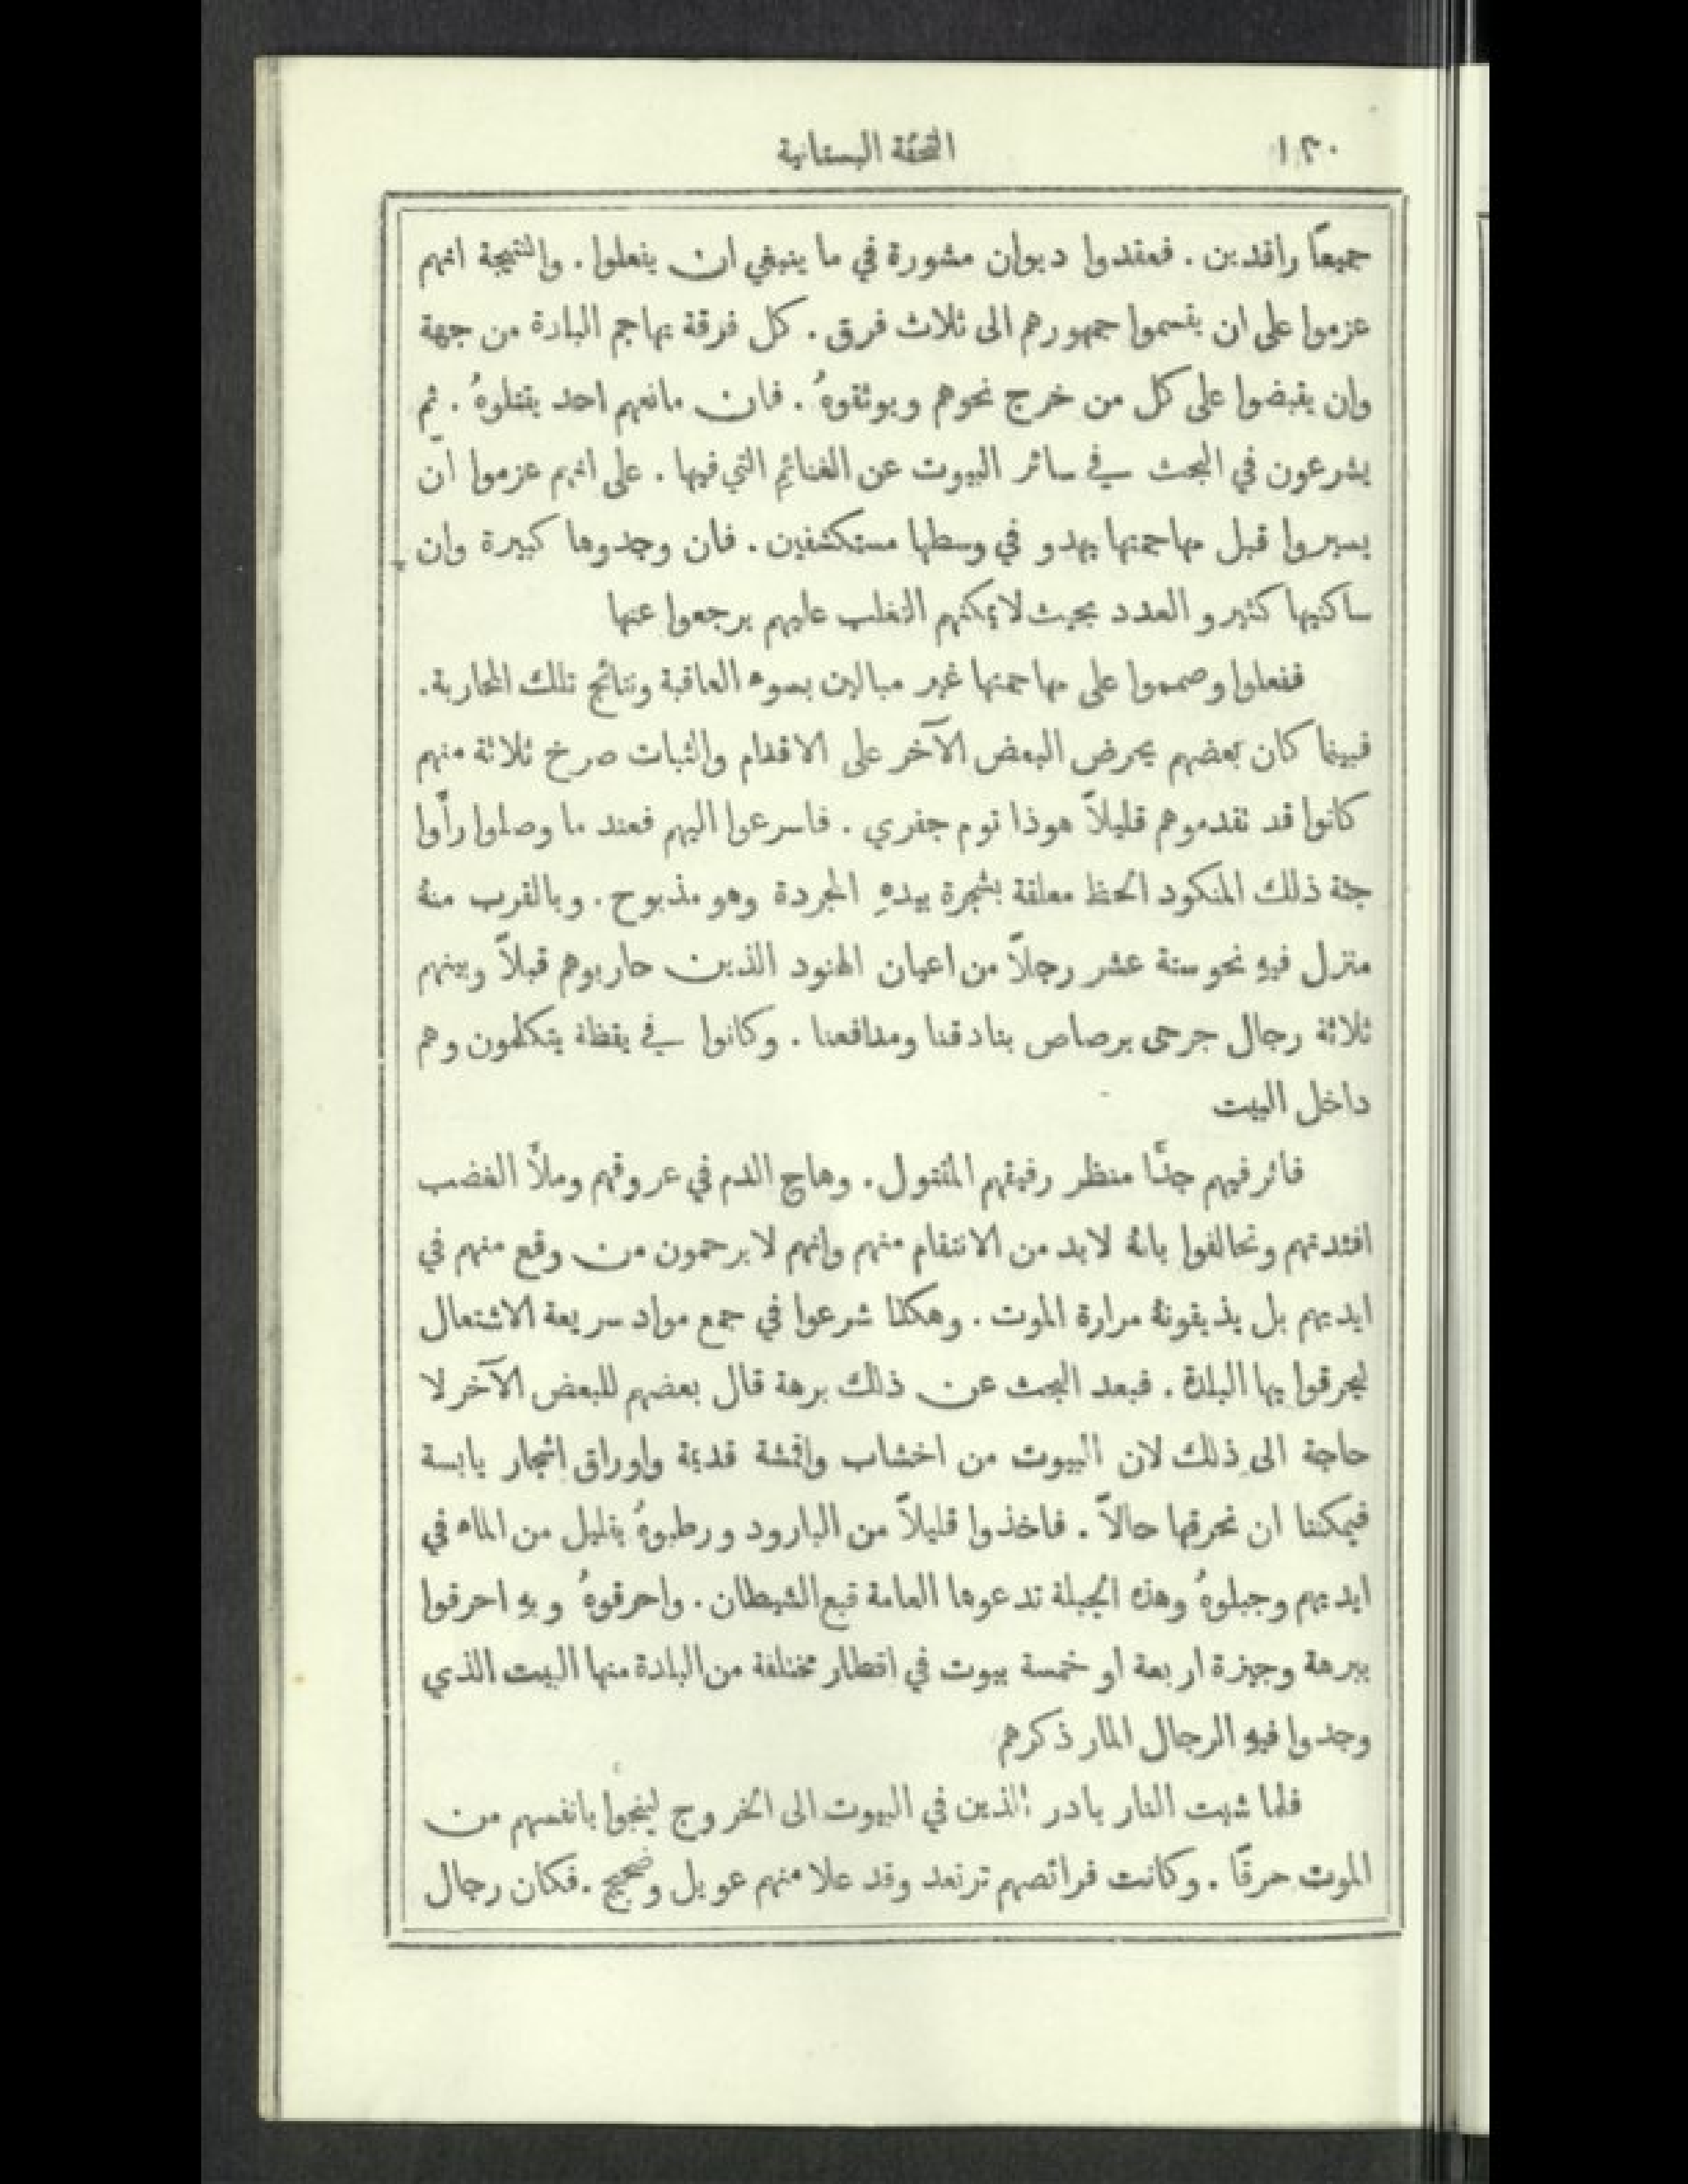 ١٣٠ التحفة البستانية
جميعًا راقدين . فعقدوا ديوان مشورة في ما ينبغي ان يفعلوا . والنتيجة انهم
عزموا على ان يقسموا جمهورهم الى ثلاث فرق . كل فرقة تهاجم البلدة من جهة
وان يقبضوا على كل من خرج نحوهم ويوثقوهُ . فان مانعهم احد يقتلوهُ . ثم
يشرعون في البحث في سائر البيوت عن الغنائم التي فيها . على انهم عزموا ان
يسيروا قبل مهاجمتها بهدوٍ في وسطها مستكشفين . فان وجدوها كبيرة وان
ساكنيها كثيرو العدد بحيث لا يمكنهم التغلب عليهم يرجعوا عنها
ففعلوا وصمموا على مهاجمتها غير مبالين بسوء العاقبة ونتائج تلك المحاربة .
فبينما كان بعضهم يحرض البعض الآخر على الاقدام والثبات صرخ ثلاثة منهم
كانوا قد تقدموهم قليلاً هوذا توم جفري . فاسرعوا اليهم فعند ما وصلوا رأوا
جثة ذلك المنكود الحظ معلقة بشجرة بيدهِ المجردة وهو مذبوح . وبالقرب منهُ
منزل فيهِ نحو ستة عشر رجلاً من اعيان الهنود الذين حاربوهم قبلاً وبينهم
ثلاثة رجال جرحى برصاص بنادقنا ومدافعنا . وكانوا في يقظة يتكلمون وهم
داخل البيت
فاثر فيهم جدًّا منظر رفيقهم المقتول . وهاج الدم في عروقهم وملأ الغضب
افئدتهم وتحالفوا بانهُ لابد من الانتقام منهم وانهم لا يرحمون من وقع منهم في
ايديهم بل يذيقونهُ مرارة الموت . وهكذا شرعوا في جمع مواد سريعة الاشتعال
ليحرقوا بها البلدة . فبعد البحث عن ذلك برهة قال بعضهم للبعض الآخر لا
حاجة الى ذلك لان البيوت من اخشاب واقمشة قديمة واوراق اشجار يابسة
فيمكننا ان نحرقها حالاً . فاخذوا قليلاً من البارود ورطبوهُ بقليل من الماء في
ايديهم وجبلوهُ وهذه الجبلة تدعوها العامة قبع الشيطان . واحرقوهُ وبهِ احرقوا
ببرهة وجيزة اربعة او خمسة بيوت في اقطار مختلفة من البلدة منها البيت الذي
وجدوا فيهِ الرجال المار ذكرهم
فلما شبت النار بادر الذين في البيوت الى الخروج لينجوا بانفسهم من
الموت حرقًا . وكانت فرائصهم ترتعد وقد علا منهم عويل وضجيج . فكان رجال